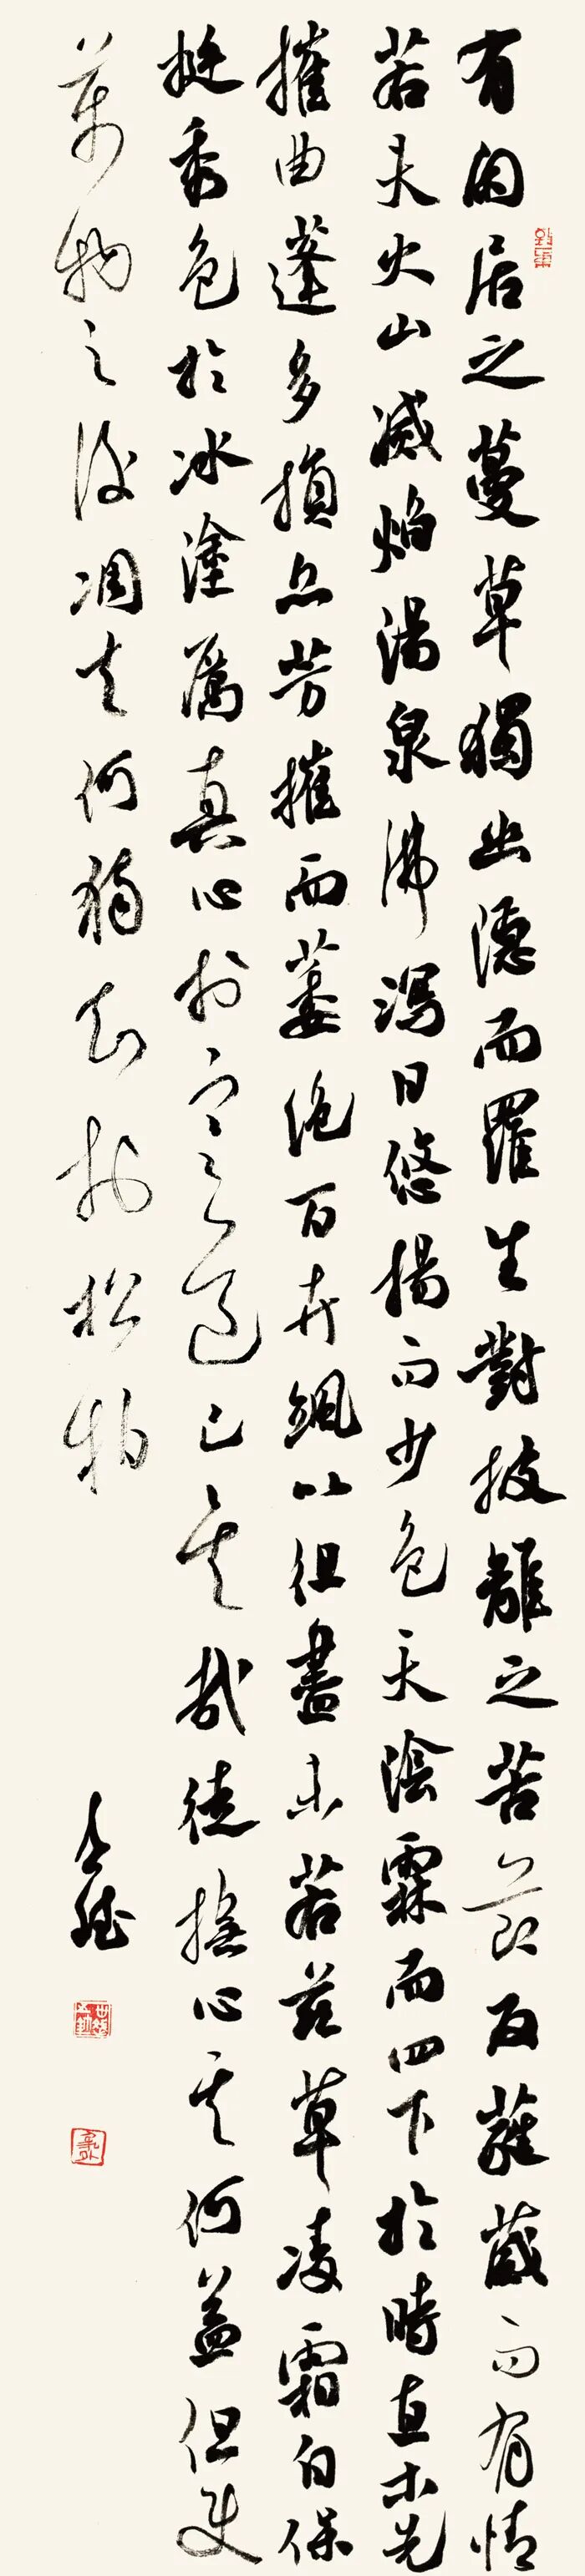 有閑居之蔓草獨幽隱而羅生對披離之苦節反蕤葳而有情
若夫火山滅焰湯泉沸瀉日悠揚而少色天陰霖而四下於時直木先
摧曲蓬多損衆芳摧而萎絕百卉颯以徂盡未若茲草凌霜自保
挺秀色於冰塗厲真心於寒道已矣哉徒撫心其何益但使
萬物之後凋夫何獨知於松柏